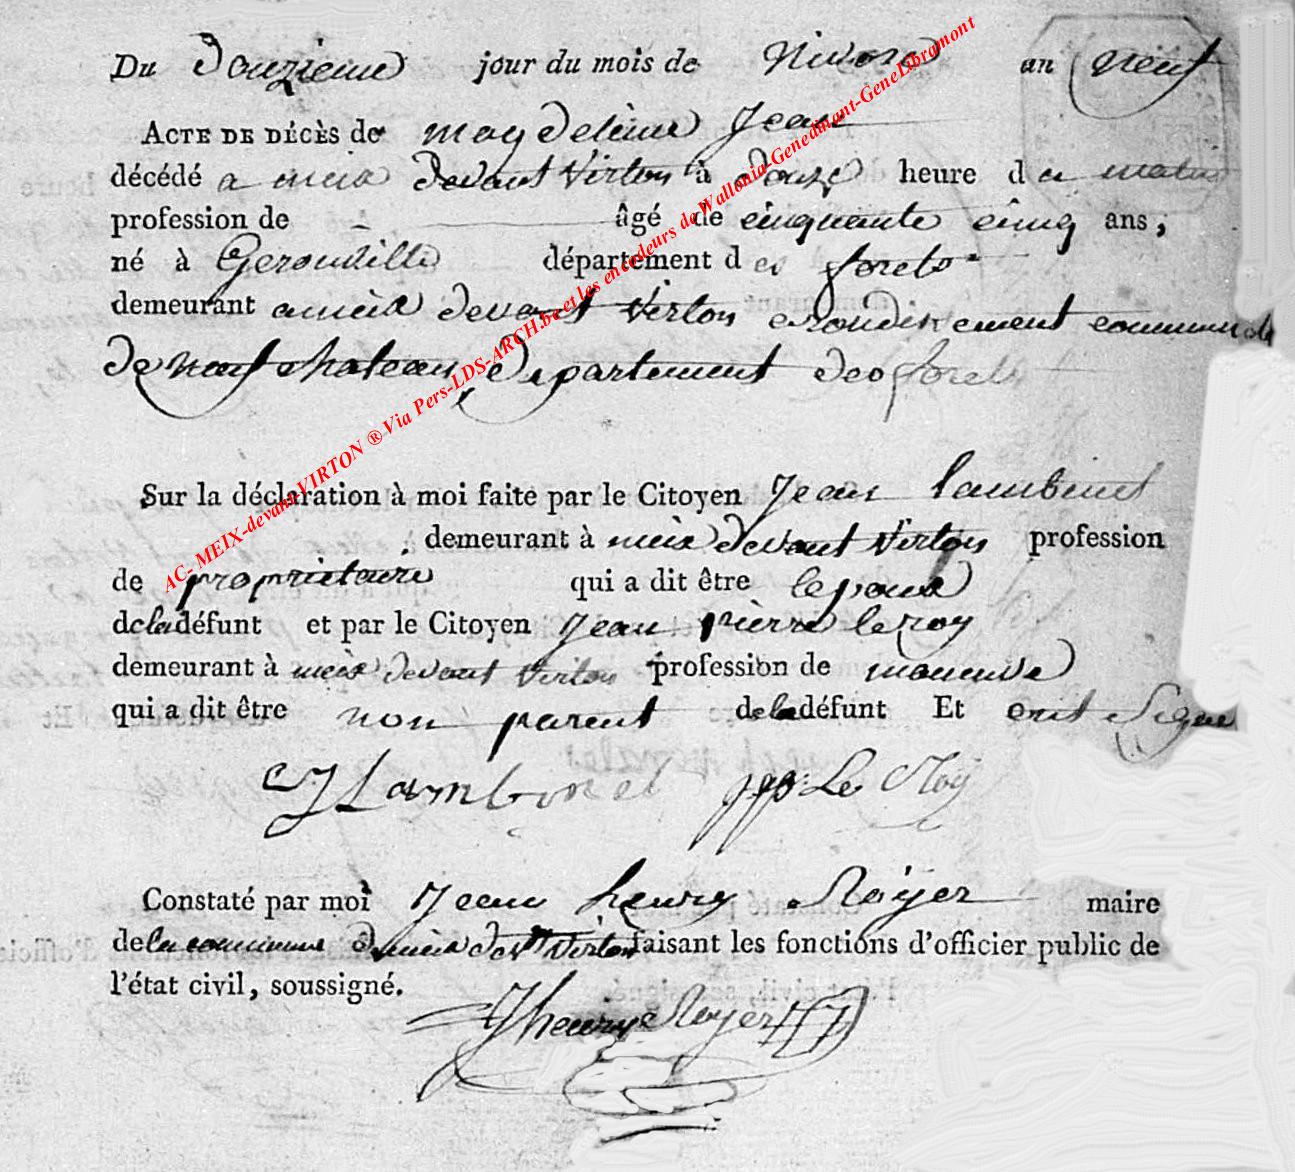 Du Douzieme jour du mois de Nivose an neuf
ACTE DE DÉCÈS de magdeleine Jean
décédé a meix devant Virton à douze heure du matin
profession de — âgé de cinquante cinq ans;
né à Gerouville département des forets
demeurant a meix devant Virton erondissement communal
de neufchateau, departement des forets
Sur la déclaration à moi faite par le Citoyen Jean Lambinet
demeurant à meix devant Virton profession
de proprietaire qui a dit être lepoux
de la défunt et par le Citoyen Jean pierre le roy
demeurant à meix devant Virton profession de maneuve
qui a dit être non parent de la défunt Et ont Signe
J Lambinet jpp: Le Roy
Constaté par moi Jean henry Roÿer maire
de la commune de meix devt Virton faisant les fonctions d'officier public de
l'état civil, soussigné.
J henry Royer
AC- MEIX-devant VIRTON ® Via Pers-LDS-ARCH.be et les encodeurs de Wallonia-Genedinant-GeneLibramont